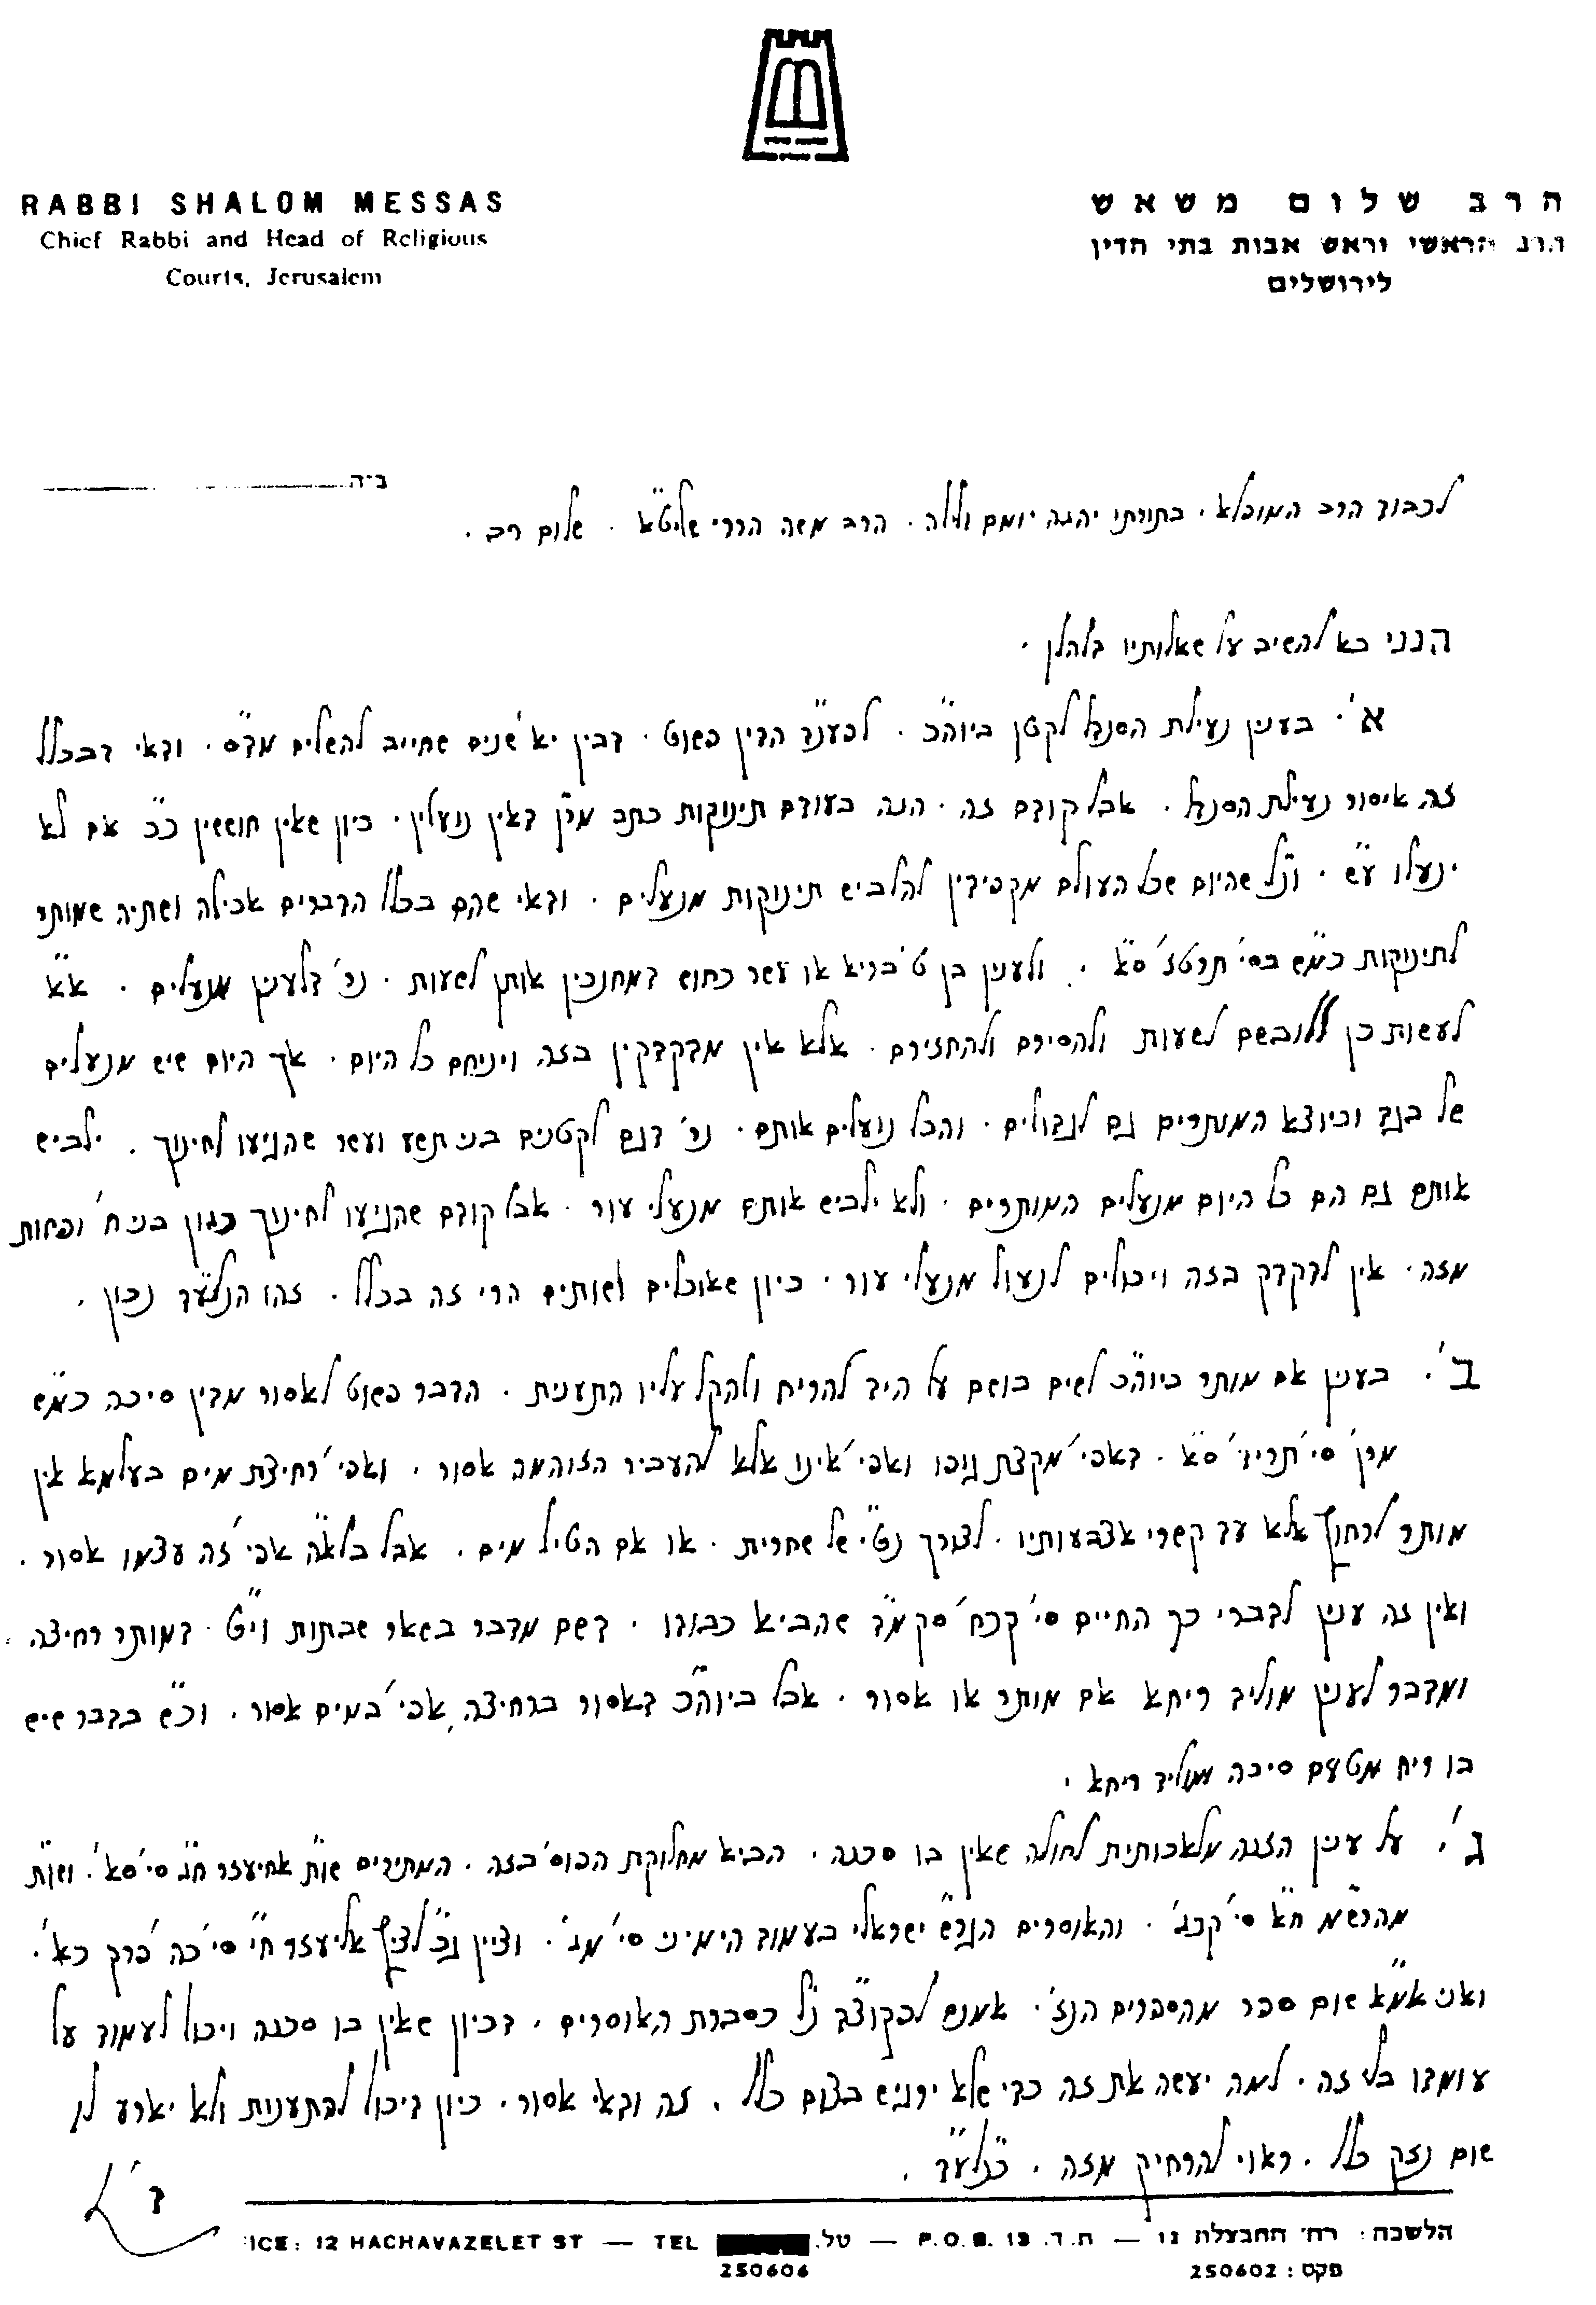 RABBI SHALOM MESSAS
Chief Rabbi and Head of Religious
Courts, Jerusalem
הרב שלום משאש
הרב הראשי וראש אבות בתי הדין
לירושלים
ב״ה
לכבוד הרב המופלא. בתורתו יהגה יומם ולילה. הרב משה הררי שליט״א. שלום רב.
הנני בא להשיב על שאלותיו בלהלן.
א'. בענין נעילת הסנדל לקטן ביוה״כ. לפענ״ד הדין פשוט. דבין יא' שנים שחייב להשלים מד״ס. ודאי דבכלל
זה איסור נעילת הסנדל. אבל קודם זה. הנה בעודם תינוקות כתב מרן דאין נועלין. כיון שאין חוששין כ״כ אם לא
ינעלו ע״ש. ונ״ל שהיום שכל העולם מקפידין להלביש תינוקות מנעלים. ודאי שהם בכלל הדברים אכילה ושתיה שמותר
לתינוקות כמ״ש בסי' תרטז' ס״א. ולענין בן ט' בריא או עשר כחוש דמחנכין אותן לשעות. נר' דלענין מנעלים. א״א
לעשות כן ללובשם לשעות ולהסירם ולהחזירם. אלא אין מדקדקין בזה ויניחם כל היום. אך היום שיש מנעלים
של בגד וכיוצא המותרים גם לגדולים. והכל נועלים אותם. נר' דגם לקטנים בני תשע ועשר שהגיעו לחינוך. ילביש
אותם גם הם כל היום מנעלים המותרים. ולא ילביש אותם מנעלי עור. אבל קודם שהגיעו לחינוך כגון בני ח' ופחות
מזה. אין לדקדק בזה ויכולים לנעול מנעלי עור. כיון שאוכלים ושותים הרי זה בכלל. זהו הנלע״ד נכון.
ב'. בענין אם מותר ביוה״כ לשים בושם על היד להריח ולהקל עליו התענית. הדבר פשוט לאסור מדין סיכה כמ״ש
מרן סי' תריד' ס״א. דאפי' מקצת גופו ואפי' אינו אלא להעביר הזוהמה אסור. ואפי' רחיצת מים בעלמא אין
מותר לרחוץ אלא עד קשרי אצבעותיו. לצורך נט״י של שחרית. או אם הטיל מים. אבל בלא״ה אפי' זה עצמו אסור.
ואין זה ענין לדברי כף החיים סי' קכח' סק מ״ד שהביא כבודו. דשם מדבר בשאר שבתות וי״ט. דמותר רחיצה
ומדבר לענין מוליד ריחא אם מותר או אסור. אבל ביוה״כ דאסור ברחיצה אפי' במים אסור. וכ״ש בדבר שיש
בו ריח מטעם סיכה ומוליד ריחא.
ג'. על ענין הזנה מלאכותית לחולה שאין בו סכנה. הביא מחלוקת הפוס' בזה. המתירים שו״ת אחיעזר ח״ג סי' סא'. ושו״ת
מהרש״ם ח״א סי' קכג'. והאוסרים הגר״ש ישראלי בעמוד הימיני סי' מג'. וציין ג״כ לציץ אליעזר ח״י סי' כה' פרק כא'.
ואני אמ״א שום ספר מהספרים הנז'. אמנם לפקוצ״ד נ״ל כסברת האוסרים. דכיון שאין בו סכנה ויכול לעמוד על
עומדו בלי זה. למה יעשה את זה כדי שלא ירגיש בצום כלל. זה ודאי אסור. כיון דיכול להתענות ולא יארע לו
שום נזק כלל. ראוי להרחיק מזה. כנלע״ד.
ד'
הלשכה: רח' החבצלת 12 — ת.ד. P.O.B. 13 — טל. TEL — ICE: 12 HACHAVAZELET ST
250606
פקס: 250602